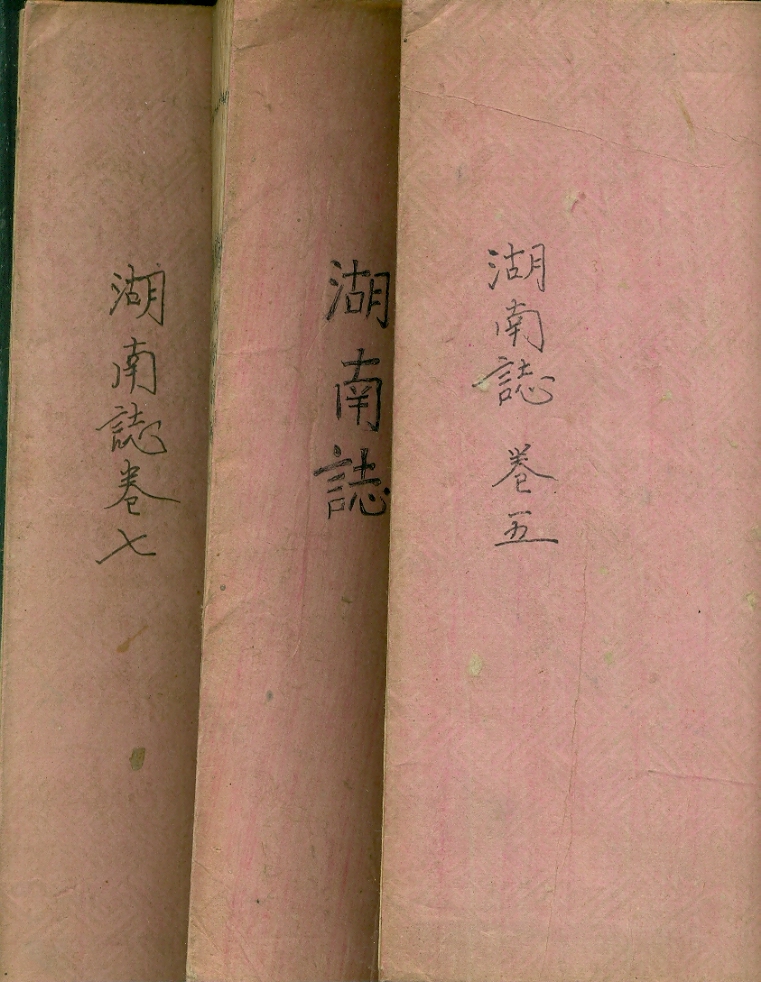 湖南誌 卷五
湖南誌
湖南誌卷七